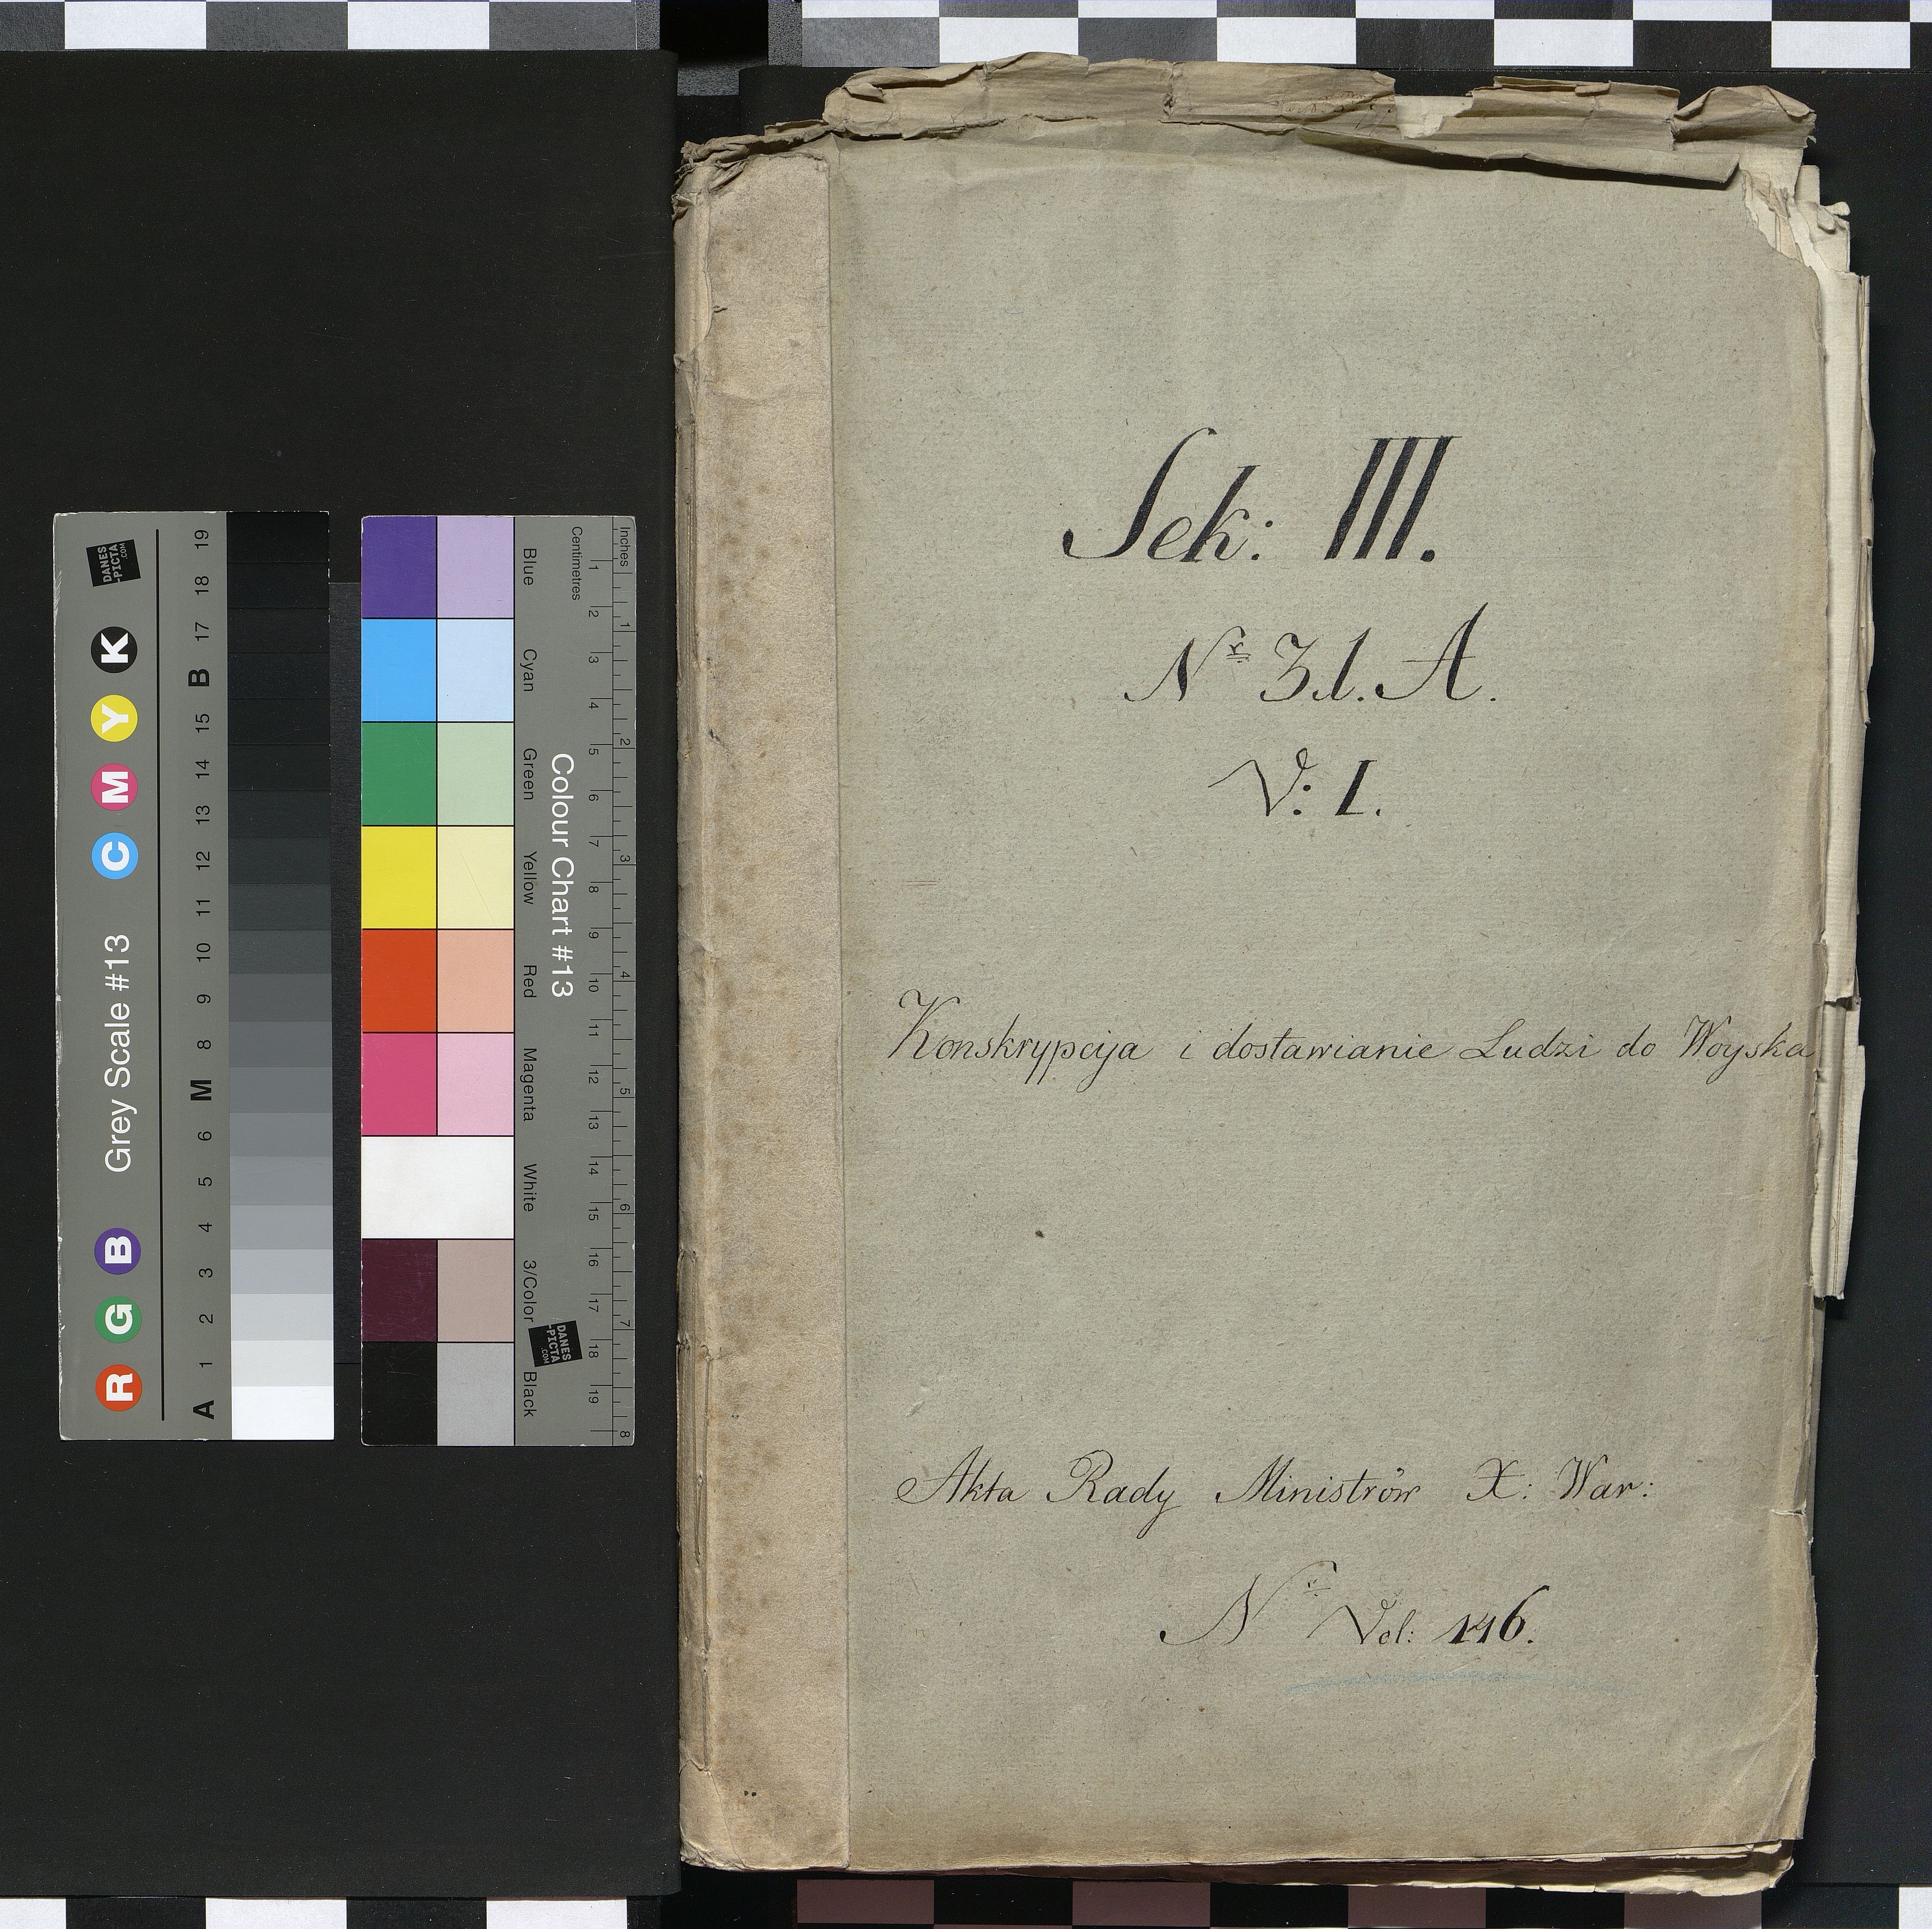 Sek: III.
Nr 31. A.
V: I.
Konskrypcija i dostawianie Ludzi do Woyska
Akta Rady Ministrów X: War:
Nr Vol: 146.
Grey Scale #13
A 1 2 3 4 5 6 M 8 9 10 11 12 13 14 15 B 17 18 19
R G B C M Y K
DANES
-PICTA
.COM
Colour Chart #13
Blue Cyan Green Yellow Red Magenta White 3/Color Black
Inches 1 2 3 4 5 6 7 8
Centimetres 1 2 3 4 5 6 7 8 9 10 11 12 13 14 15 16 17 18 19
DANES
-PICTA
.COM